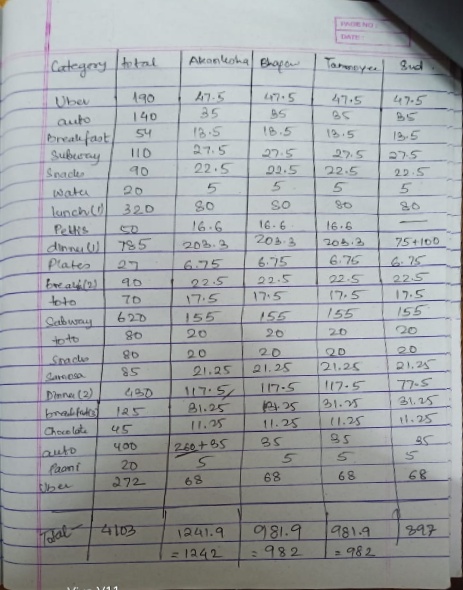 PAGE NO.
DATE:
Category total Akanksha Bhapa Tanmayee Sud
Uber 190 47.5 47.5 47.5 47.5
auto 140 35 35 35 35
Breakfast 54 13.5 13.5 13.5 13.5
Subway 110 27.5 27.5 27.5 27.5
Snacks 90 22.5 22.5 22.5 22.5
Water 20 5 5 5 5
lunch(1) 320 80 80 80 80
Pettis 50 16.6 16.6 16.6 —
dinner(1) 785 203.3 203.3 203.3 75+100
Plates 27 6.75 6.75 6.75 6.75
Breakf(2) 90 22.5 22.5 22.5 22.5
toto 70 17.5 17.5 17.5 17.5
Subway 620 155 155 155 155
toto 80 20 20 20 20
Snacks 80 20 20 20 20
Samosa 85 21.25 21.25 21.25 21.25
Dinner(2) 430 117.5 117.5 117.5 77.5
breakfast 125 31.25 31.25 31.25 31.25
Chocolate 45 11.25 11.25 11.25 11.25
auto 400 260+35 35 35 35
Paani 20 5 5 5 5
Uber 272 68 68 68 68
Total 4103 1241.9 981.9 981.9 897
=1242 =982 =982